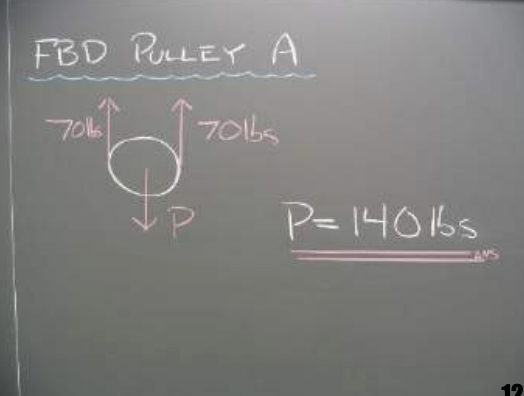 FBD PULLEY A
70lb 70lbs
P
P=140lbs
ANS
12